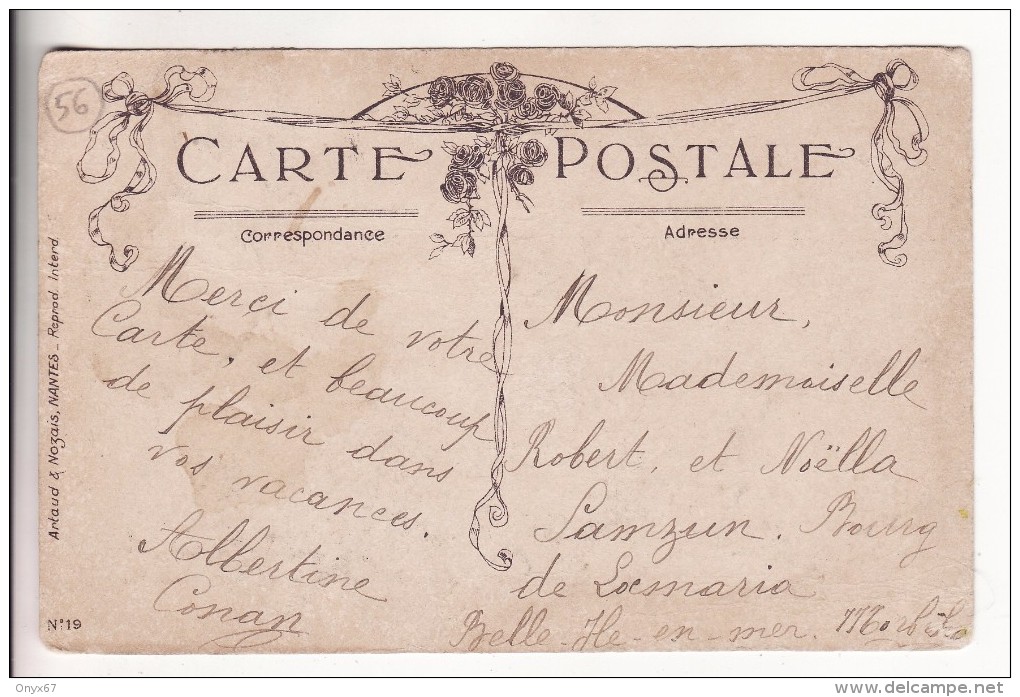 56
CARTE POSTALE
Correspondance
Adresse
Merci de votre
Carte, et beaucoup
de plaisir dans
vos vacances.
Albertine
Conan
Monsieur,
Mademoiselle
Robert, et Noëlla
Samzun. Bourg
de Locmaria
Belle-Ile-en-mer.
Artaud & Nozais, NANTES - Reprod. Interd
N°19
Onyx67
delcampe.net